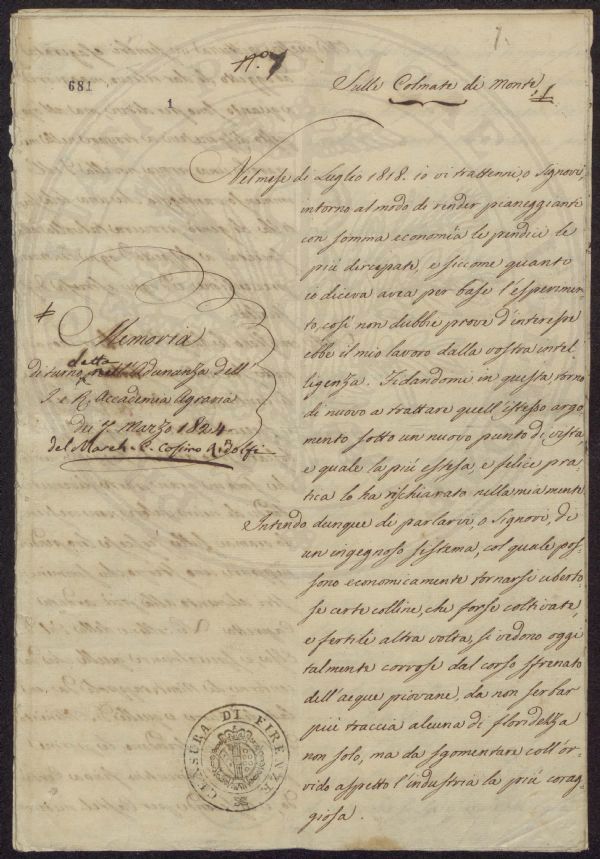 n.º 7
1.
681
1
Sulle Colmate di Monte
Nel mese di Luglio 1818. io vi trattenni, o Signori,
intorno al modo di render pianeggianti
con somma economia le pendici le
più dirupate, e siccome quanto
io diceva avea per base l'esperimen-
to, così non dubbie prove d'interesse
ebbe il mio lavoro dalla vostra intel-
ligenza. Fidandomi in questa torno
di nuovo a trattare quell'istesso argo-
mento sotto un nuovo punto di vista
e quale la più estesa, e felice pra-
tica lo ha rischiarato nella mia mente.
Intendo dunque di parlarvi, o Signori, di
un ingegnoso sistema, col quale pos-
sono economicamente tornarsi uberto-
se certe colline, che forse coltivate,
e fertili altra volta, si vedono oggi
talmente corrose dal corso sfrenato
dell'acque piovane, da non serbar
più traccia alcuna di floridezza
non solo, ma da sgomentare coll'or-
vido aspetto l'industria la più corag-
giosa.
Memoria
di turno detta nell'Adunanza dell'
I. e R. Accademia Agraria
dei 7. Marzo 1824.
del March. C. Cosimo Ridolfi
CENSURA DI FIRENZE